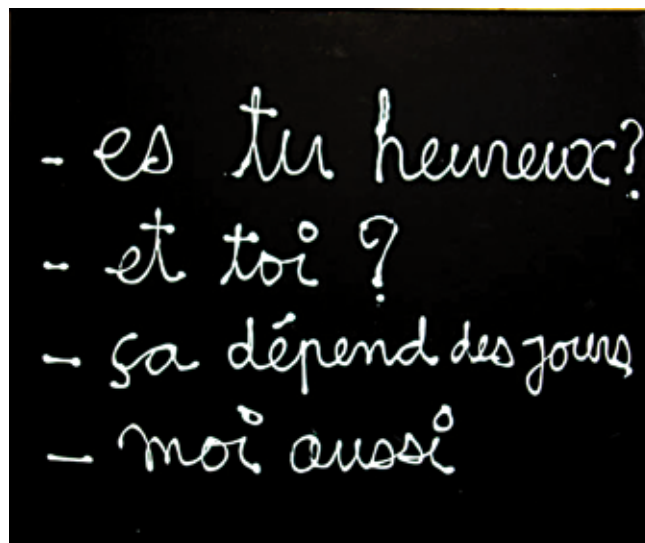 - es tu heureux?
- et toi ?
- ça dépend des jours
- moi aussi